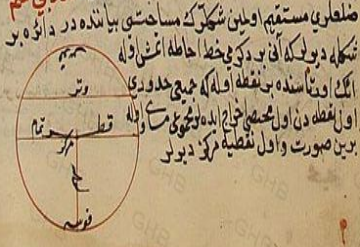 ضلعلري مستقيم اولمين شكللرك مساحتني بياننده در دائره بر
شكله ديرلر كه آني بر دكرمي خط احاطه اتمش اوله
انك اورتاسنده بر نقطه اوله كه جميع حدودي
اول نقطه دن اول محيطه اخراج ايده لر مجموعي مساوي اوله
برين صورت و اول نقطيه مركز ديرلر
وتر
قطر تمام
مركز
قوس
GHB